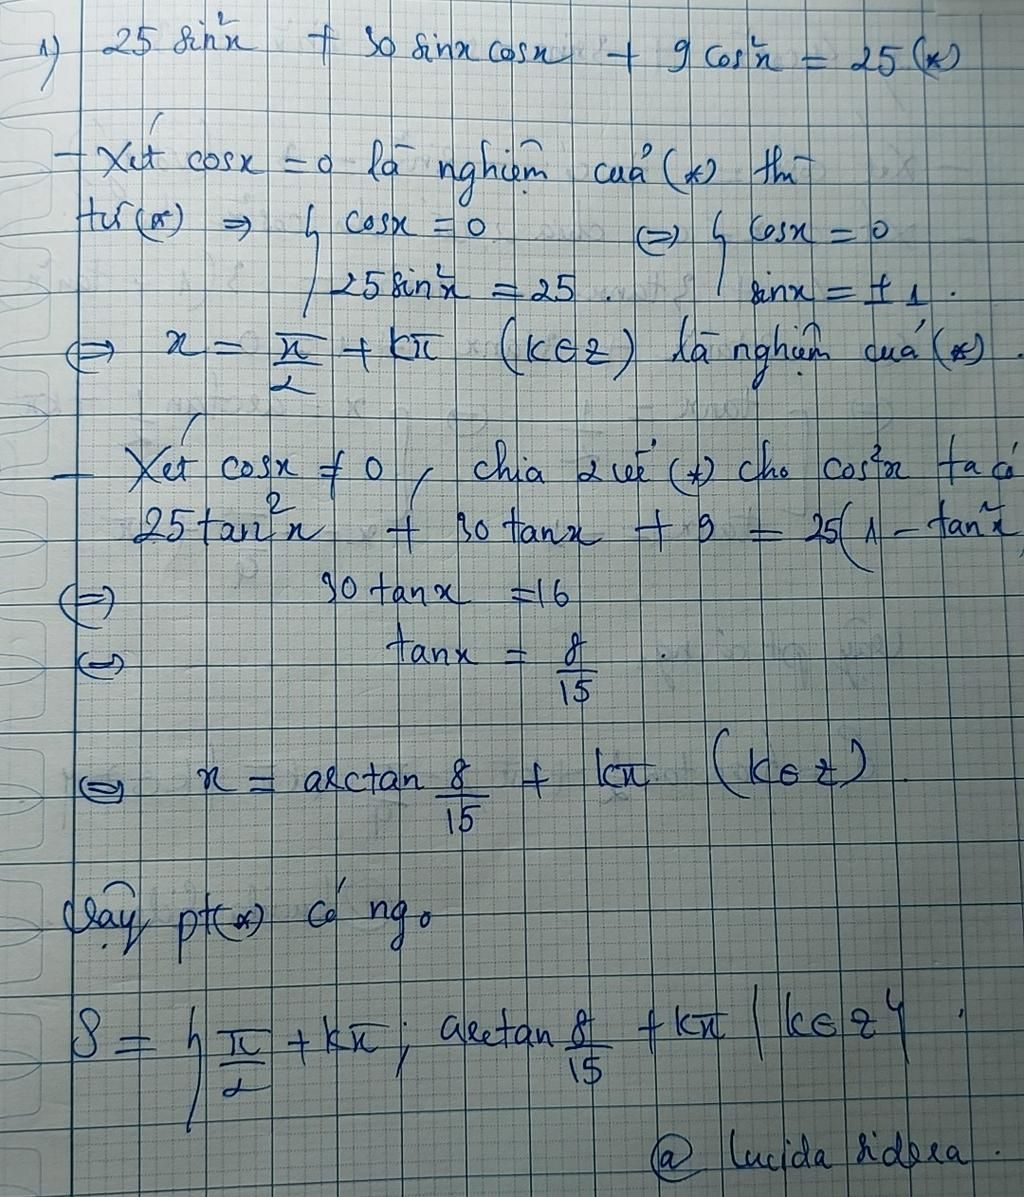 1) 25 sin²x + 30 sinx cosx + 9 cos²x = 25 (*)
- Xét cosx = 0 là nghiệm của (*) thì
từ (*) ⇒ { cosx = 0 ⇔ { cosx = 0
25 sin²x = 25 . sinx = ± 1 .
⇔ x = π/2 + kπ (k ∈ Z) là nghiệm của (*) .
- Xét cosx ≠ 0 , chia 2 vế (*) cho cos²x ta có
25 tan²x + 30 tanx + 9 = 25(1 - tan²x)
⇔ 30 tanx = 16
⇔ tanx = 8/15 .
⇔ x = arctan 8/15 + kπ (k ∈ Z)
Vậy pt(*) có ngo
S = { π/2 + kπ ; arctan 8/15 + kπ | k ∈ Z } .
@ lucida sidera .